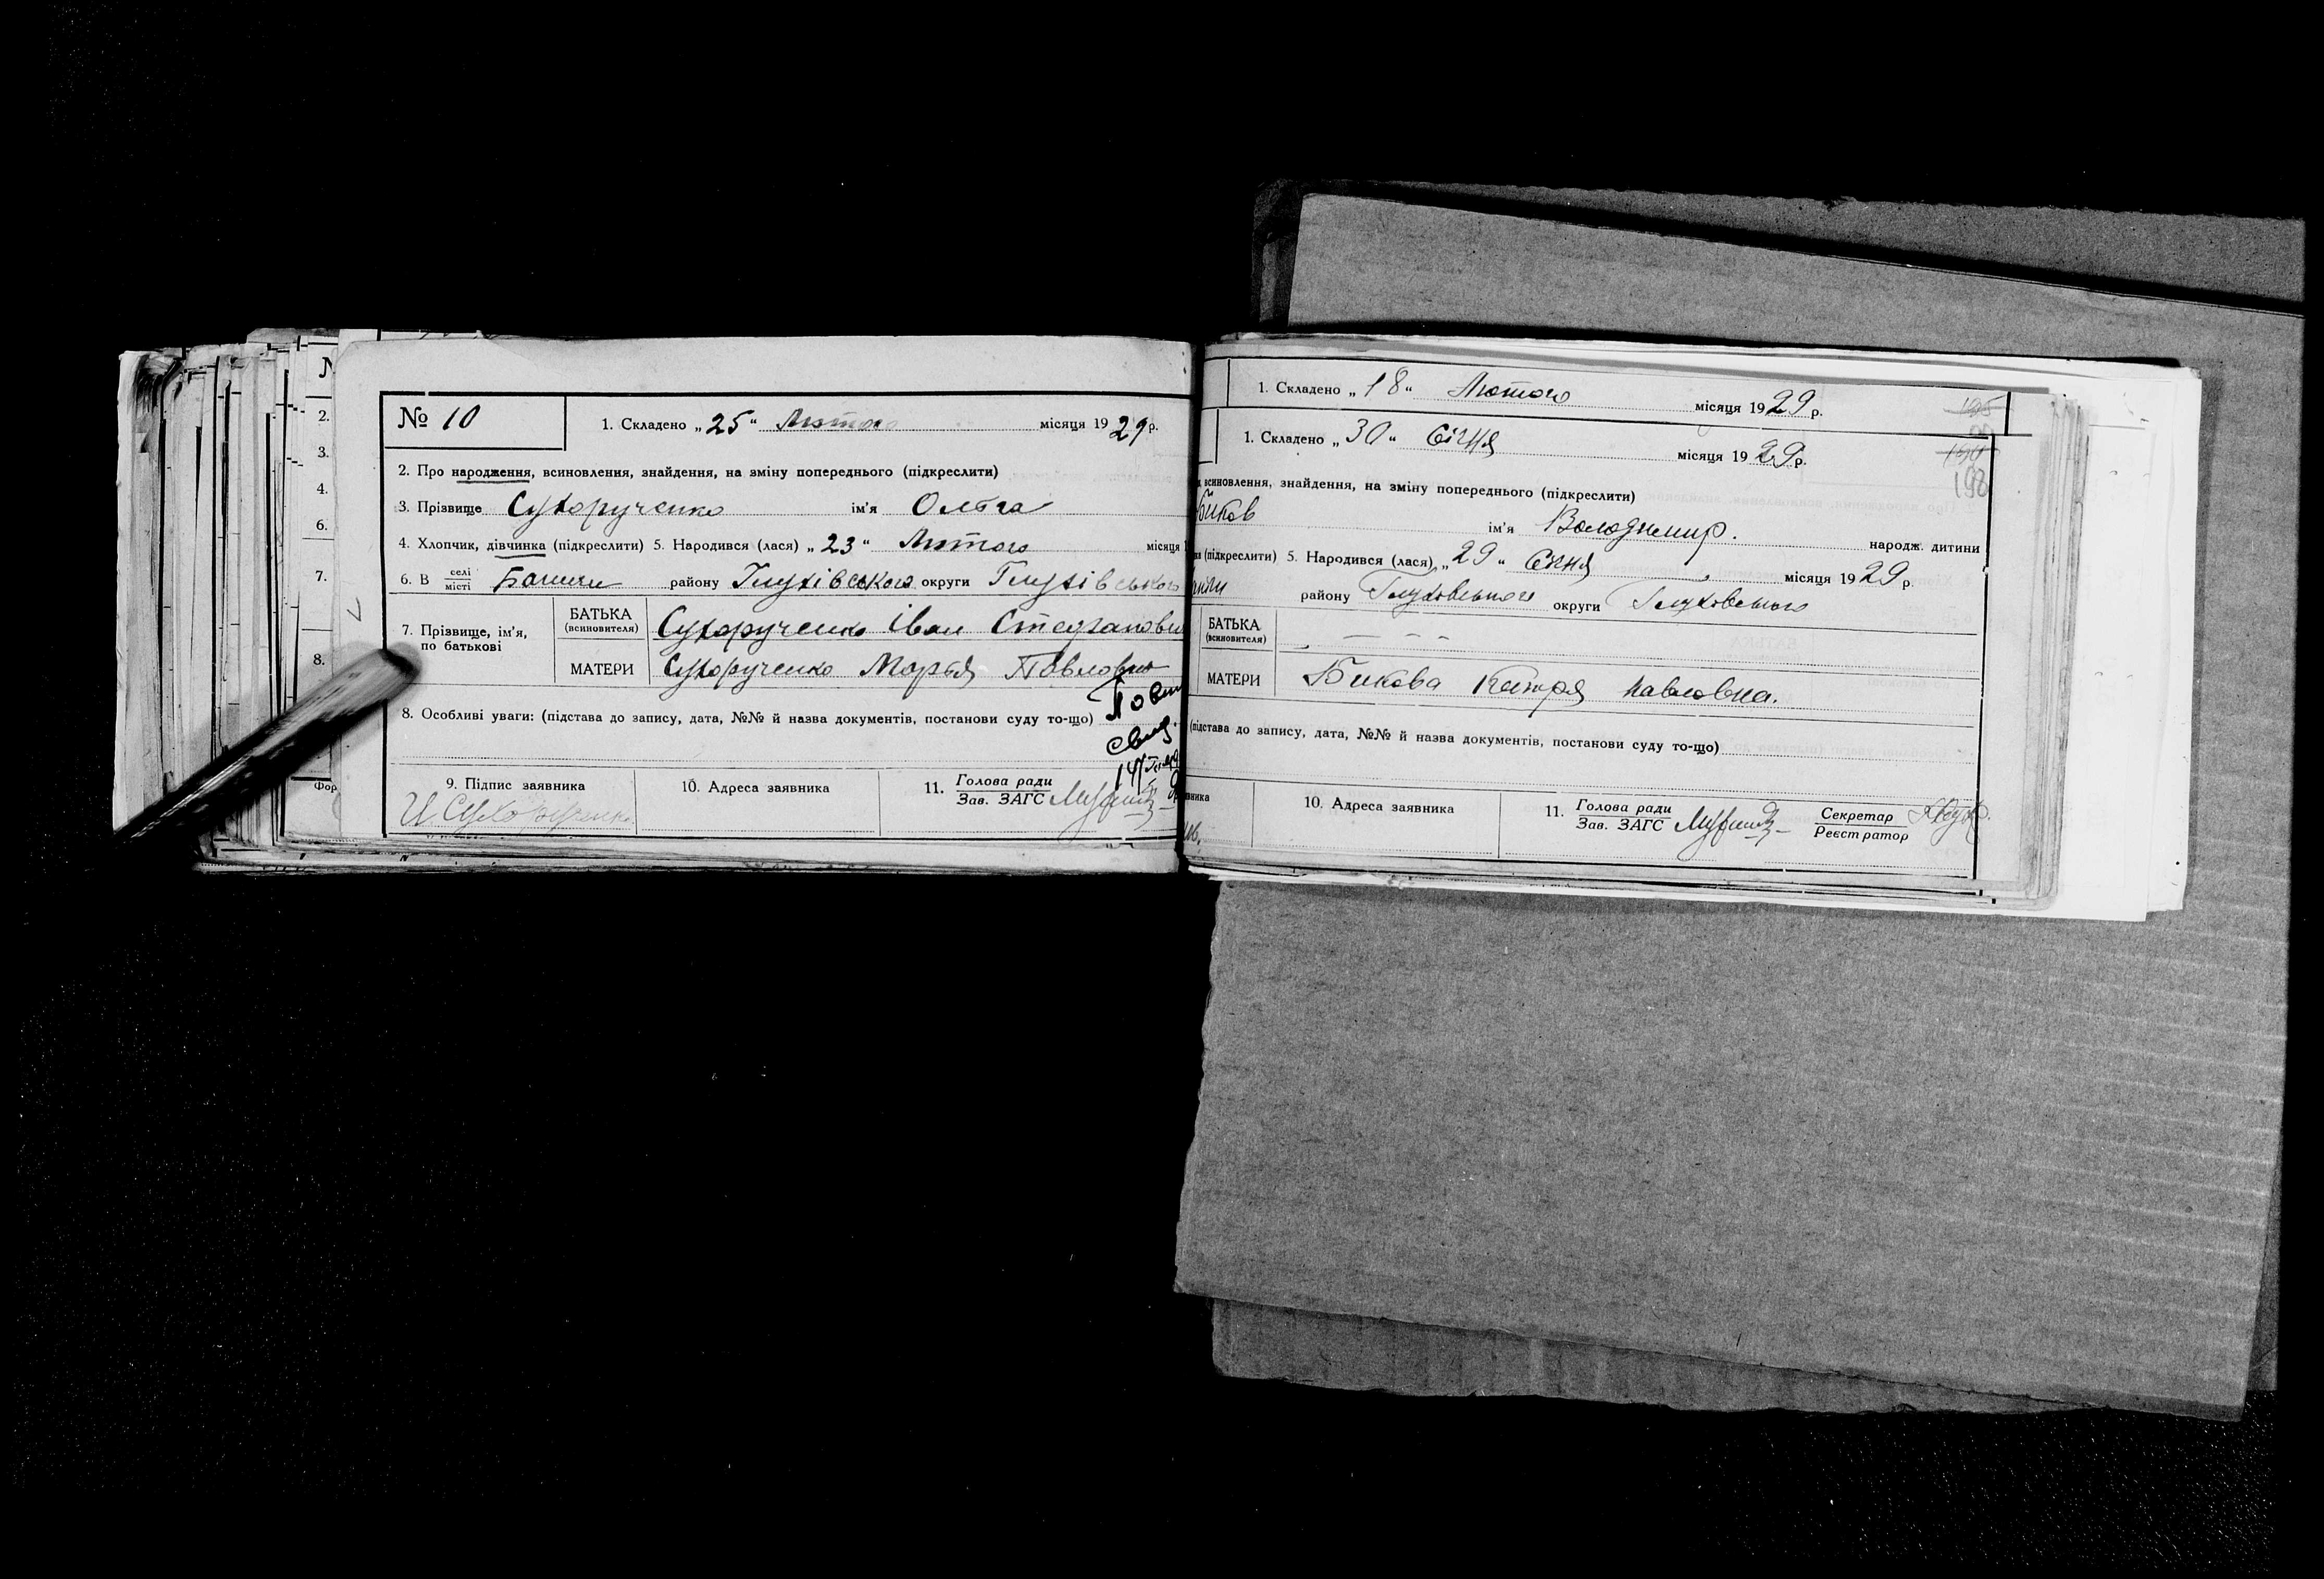 № 10
1. Складено „25" Лютого місяця 1929 р.
2. Про народження, всиновлення, знайдення, на зміну попереднього (підкреслити)
3. Прізвище Сухорученко ім'я Ольга
4. Хлопчик, дівчинка (підкреслити) 5. Народився (лася) „23" Лютого місяця
6. В селі місті Баничи району Глухівського округи Глухівського
7. Прізвище, ім'я, по батькові
БАТЬКА (всиновителя) Сухорученко Іван
МАТЕРИ Сухорученко Марья
8. Особливі уваги: (підстава до запису, дата, №№ й назва документів, постанови суду то-що)
9. Підпис заявника
И Сухорученко
10. Адреса заявника
11. Голова ради
Зав. ЗАГС
№
2.
3.
4.
6.
7.
8.
Фор
1. Складено „18" Лютого місяця 1929 р.
195
1. Складено „30" Січня місяця 1929 р.
198
всиновлення, знайдення, на зміну попереднього (підкреслити)
Биков ім'я Володимир. народж. дитини
(підкреслити) 5. Народився (лася) „29" Січня місяця 1929 р.
району Глуховського округи Глуховського
БАТЬКА (всиновителя) — — — —
МАТЕРИ Бикова Катря Павловна.
(підстава до запису, дата, №№ й назва документів, постанови суду то-що)
вника
10. Адреса заявника
11. Голова ради
Зав. ЗАГС
Секретар
Реєстратор